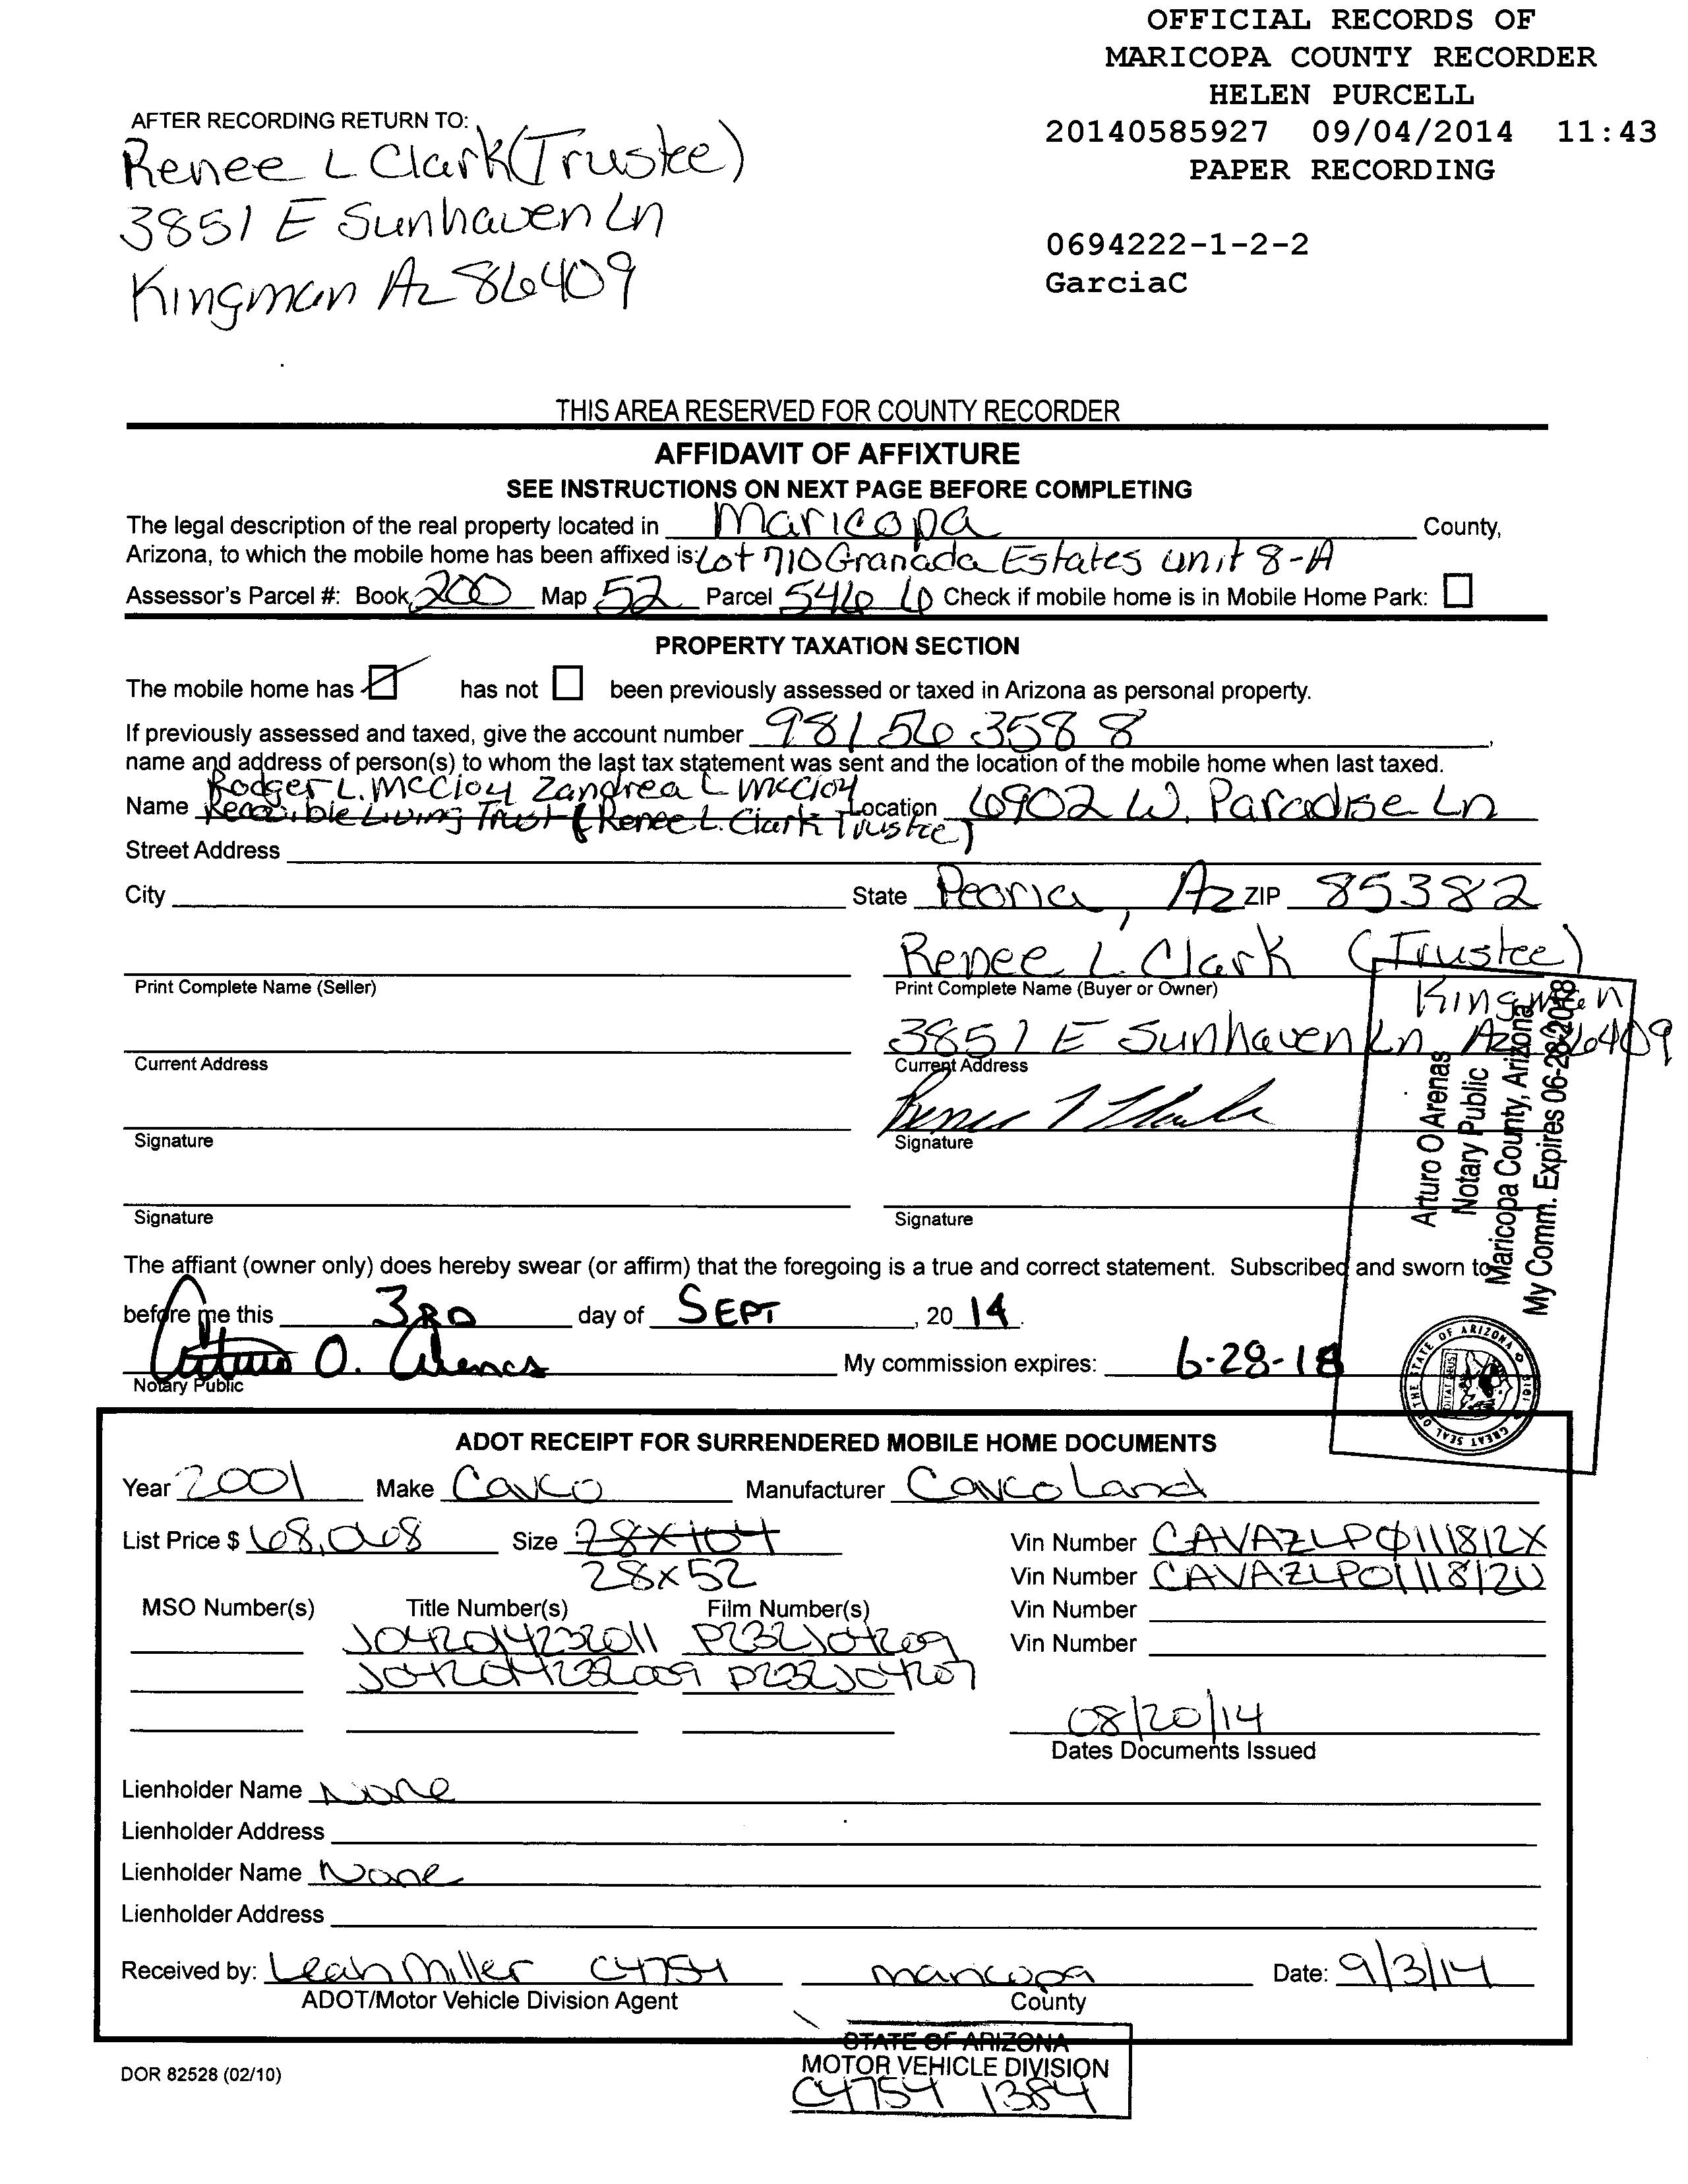 OFFICIAL RECORDS OF
MARICOPA COUNTY RECORDER
HELEN PURCELL
20140585927 09/04/2014 11:43
PAPER RECORDING
0694222-1-2-2
GarciaC
AFTER RECORDING RETURN TO:
Renee L Clark (Trustee)
3851 E Sunhaven Ln
Kingman Az 86409
THIS AREA RESERVED FOR COUNTY RECORDER
AFFIDAVIT OF AFFIXTURE
SEE INSTRUCTIONS ON NEXT PAGE BEFORE COMPLETING
The legal description of the real property located in Maricopa County,
Arizona, to which the mobile home has been affixed is: Lot 710 Granada Estates unit 8-A
Assessor's Parcel #: Book 200 Map 52 Parcel 546 6 Check if mobile home is in Mobile Home Park:
PROPERTY TAXATION SECTION
The mobile home has has not been previously assessed or taxed in Arizona as personal property.
If previously assessed and taxed, give the account number 98156 3588,
name and address of person(s) to whom the last tax statement was sent and the location of the mobile home when last taxed.
Rodger L. McCloy Zandrea L McCloy
Name Living Trust (Renee L. Clark Trustee) Location 6902 W. Paradise Ln
Street Address
City State Peoria, Az ZIP 85382
Renee L. Clark (Trustee)
Print Complete Name (Seller) Print Complete Name (Buyer or Owner)
Kingman
3851 E Sunhaven Ln Az 86409
Current Address Current Address
Signature Signature
Signature Signature
Arturo O Arenas
Notary Public
Maricopa County, Arizona
My Comm. Expires 06-28-2018
The affiant (owner only) does hereby swear (or affirm) that the foregoing is a true and correct statement. Subscribed and sworn to
before me this 3RD day of SEPT, 20 14.
Arturo O. Arenas My commission expires: 6-28-18
Notary Public
GREAT SEAL OF THE STATE OF ARIZONA
DITAT DEUS
1912
ADOT RECEIPT FOR SURRENDERED MOBILE HOME DOCUMENTS
Year 2001 Make Cavco Manufacturer Cavco Land
List Price $ 68,068 Size 28x104 Vin Number CAVAZLP0111812X
28x52 Vin Number CAVAZLP0111812U
MSO Number(s) Title Number(s) Film Number(s) Vin Number
J042014232011 P232J04209 Vin Number
J042014232009 P232J04207
08/20/14
Dates Documents Issued
Lienholder Name None
Lienholder Address
Lienholder Name None
Lienholder Address
Received by: Leah Miller C4754 Maricopa Date: 9/3/14
ADOT/Motor Vehicle Division Agent County
STATE OF ARIZONA
DOR 82528 (02/10) MOTOR VEHICLE DIVISION
C4754 1384